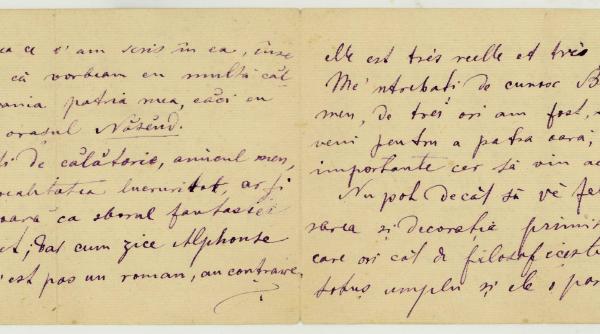 ce v'am scris în ea, înse
că vorbeam cu multă căl
ania patria mea, căci eu
orașul Năsĕud.
ti de călătorie, amicul meu,
ealitatea lucrurilor, ar fi
oară ca sborul fantasiei
et; dar cum zice Alphonse
'est pas un roman, au contraire,
elle est très réelle et très
Mĕ 'ntrebați de cunosc B
meu, de trei ori am fost,
veni pentru a patra oară;
importante cer să vin ac
Nu pot decât să vĕ fe
area și decorația primi
care ori cât de filosof ceti
totuș umplu și ele o par